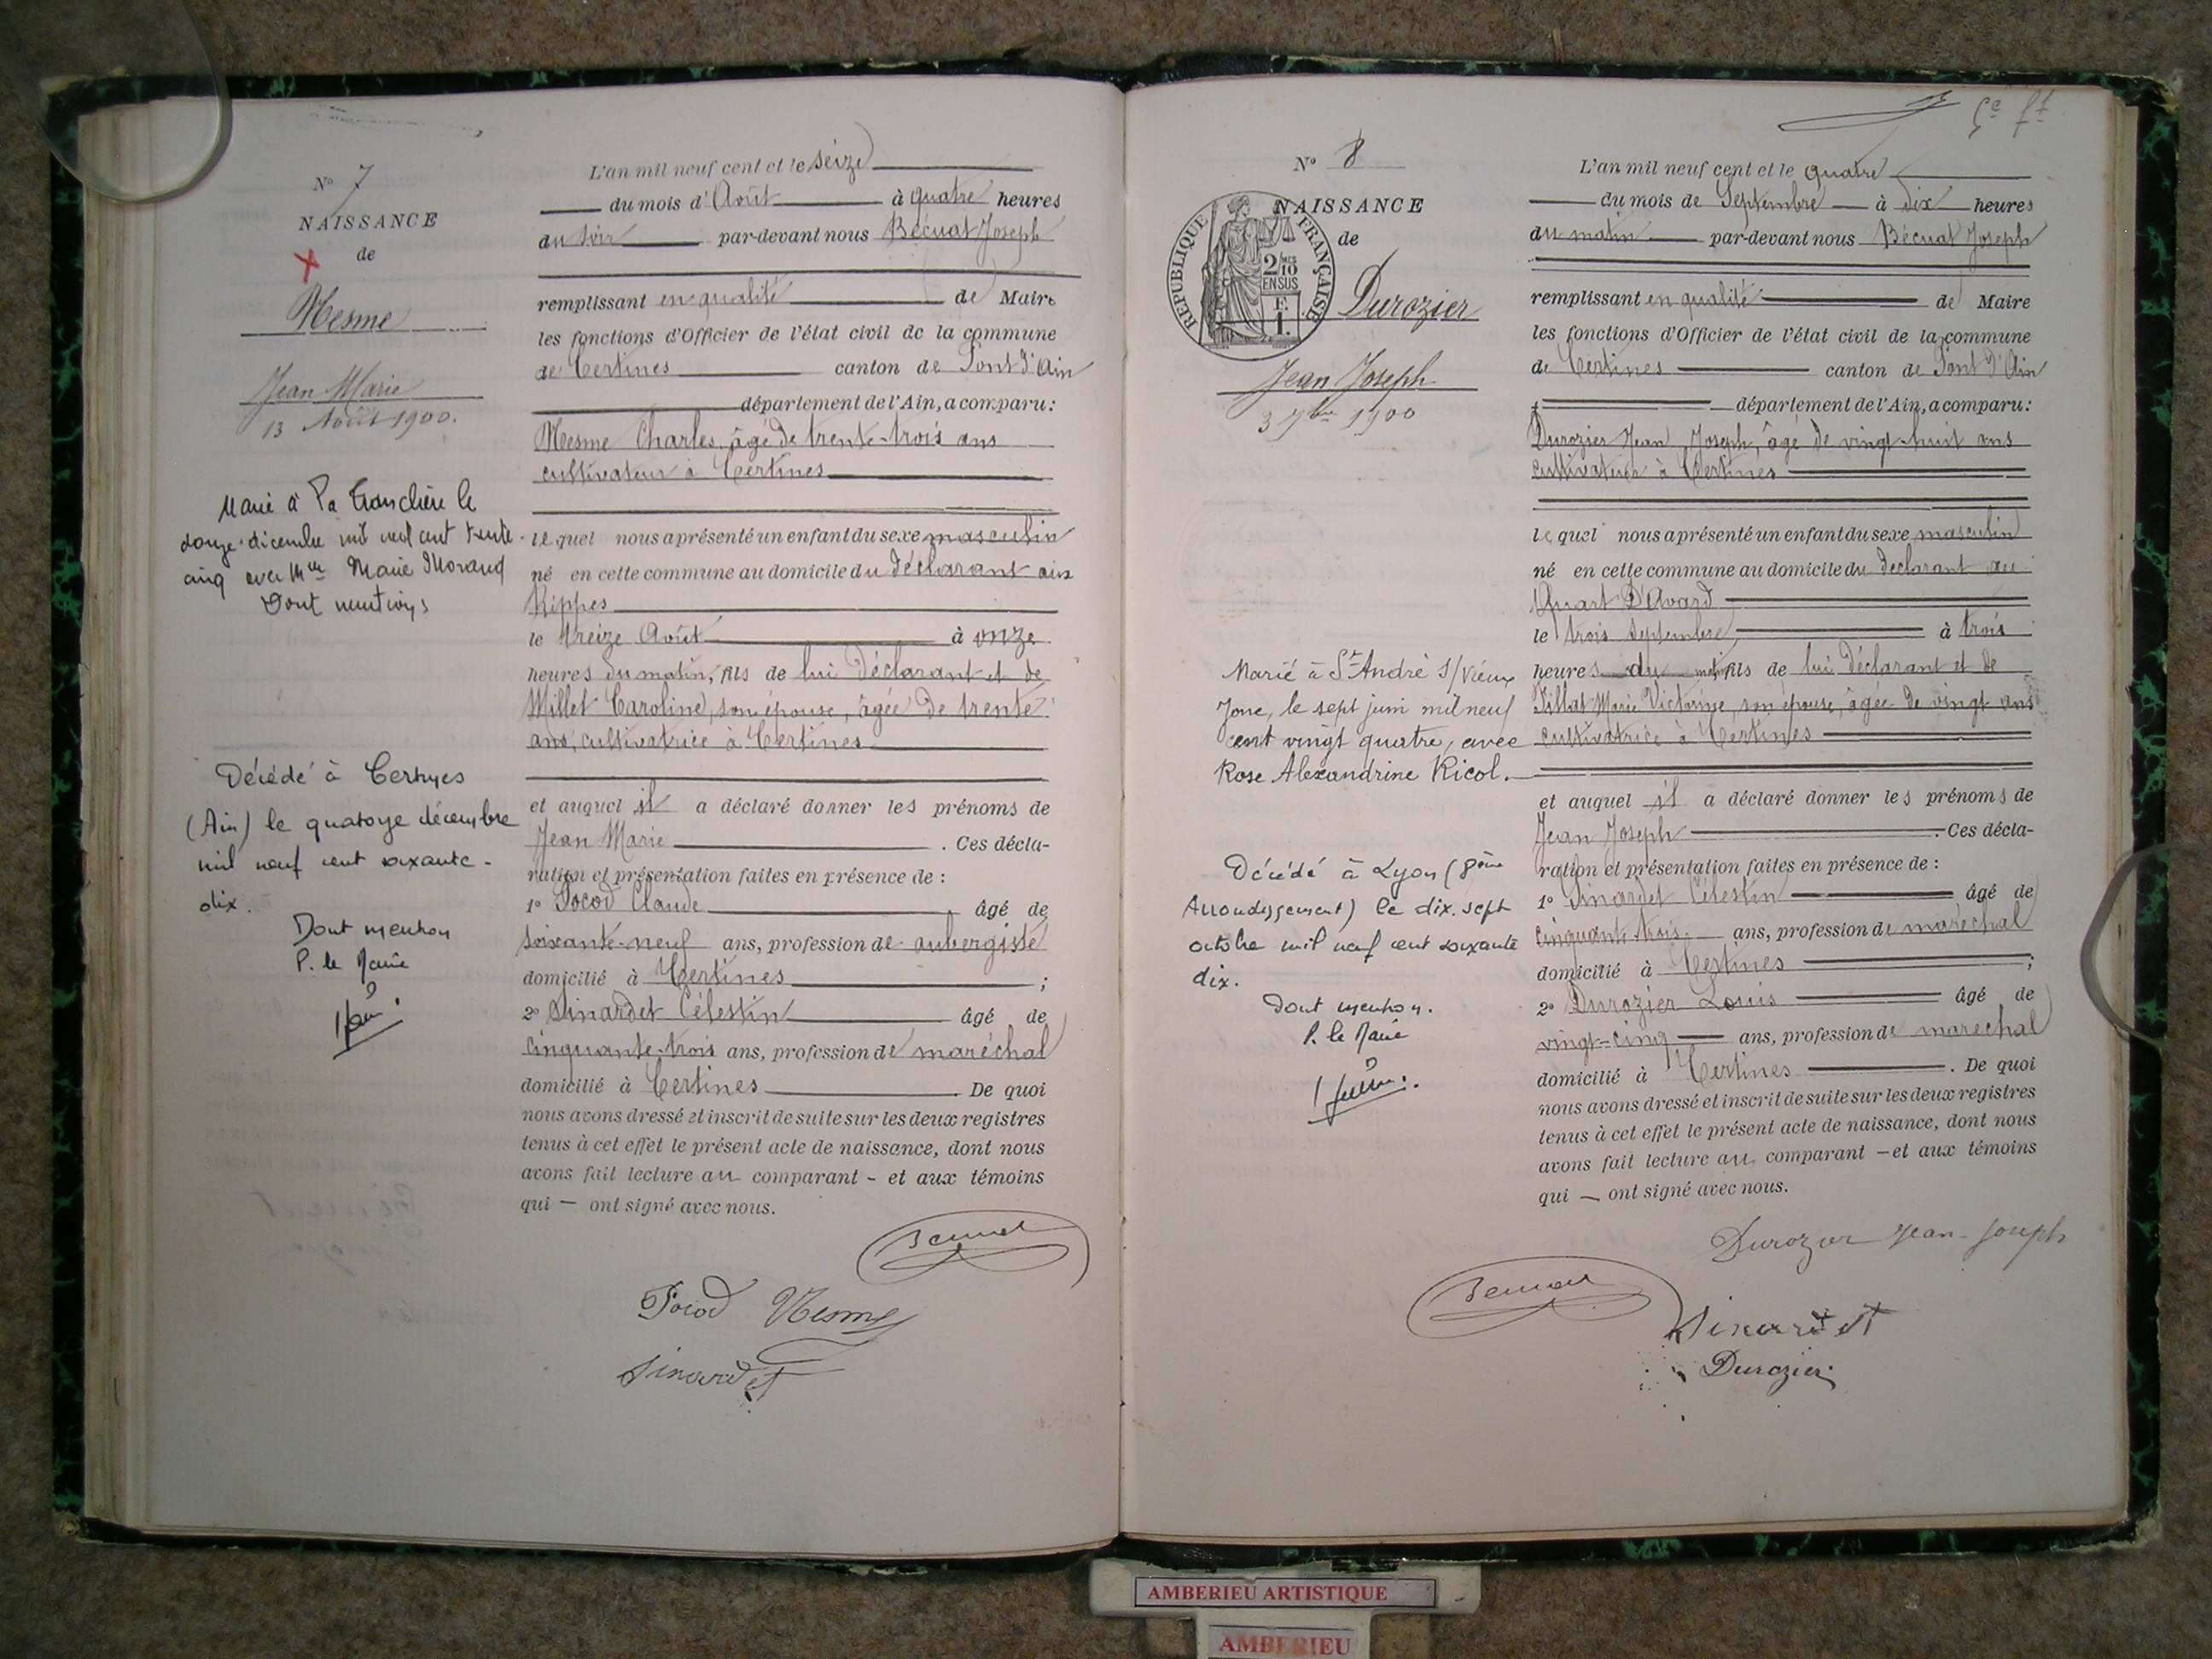 N° 7
NAISSANCE
de
Mesme
Jean Marie
13 Août 1900.
Marié à La Tranclière le
douze décembre mil neuf cent trente-
cinq avec Mlle Marie Morand
Dont mention
Décédé à Certines
(Ain) le quatorze décembre
mil neuf cent soixante-
dix.
Dont mention
P. le Maire
L'an mil neuf cent et le seize
du mois d'Août à quatre heures
du soir par-devant nous Bécuat Joseph
remplissant en qualité de Maire
les fonctions d'Officier de l'état civil de la commune
de Certines canton de Pont d'Ain
département de l'Ain, a comparu:
Mesme Charles, âgé de trente-trois ans
cultivateur à Certines
lequel nous a présenté un enfant du sexe masculin
né en cette commune au domicile du déclarant aux
Rippes
le treize Août à onze
heures du matin, fils de lui Déclarant et de
Millet Caroline, son épouse, âgée de trente
ans, cultivatrice à Certines
et auquel il a déclaré donner les prénoms de
Jean Marie . Ces décla-
ration et présentation faites en présence de :
1° Pocod Claude âgé de
soixante-neuf ans, profession de aubergiste
domicilié à Certines ;
2° Sinardet Célestin âgé de
cinquante-trois ans, profession de maréchal
domicilié à Certines . De quoi
nous avons dressé et inscrit de suite sur les deux registres
tenus à cet effet le présent acte de naissance, dont nous
avons fait lecture au comparant - et aux témoins
qui — ont signé avec nous.
Becuat
Pocod Mesme
Sinardet
5e ft
N° 8
NAISSANCE
de
REPUBLIQUE FRANÇAISE
2/10
EN SUS
F.
1.
Durozier
Jean Joseph
3 7bre 1900
Marié à St André s/ Vieux
Jonc, le sept juin mil neuf
cent vingt quatre, avec
Rose Alexandrine Ricol.
Décédé à Lyon (8ème
Arrondissement) le dix-sept
octobre mil neuf cent soixante
dix.
Dont mention.
P. le Maire
L'an mil neuf cent et le quatre
du mois de Septembre à dix heures
du matin par-devant nous Bécuat Joseph
remplissant en qualité de Maire
les fonctions d'Officier de l'état civil de la commune
de Certines canton de Pont d'Ain
département de l'Ain, a comparu:
Durozier Jean Joseph, âgé de vingt-huit ans
cultivateur à Certines
lequel nous a présenté un enfant du sexe masculin
né en cette commune au domicile du déclarant au
Quart D'Avard
le trois septembre à trois
heures du matin fils de lui Déclarant et de
Billat Marie Victorine, son épouse, âgée de vingt ans
cultivatrice à Certines
et auquel il a déclaré donner les prénoms de
Jean Joseph . Ces décla-
ration et présentation faites en présence de :
1° Sinardet Célestin âgé de
cinquante-trois ans, profession de maréchal
domicilié à Certines ;
2° Durozier Louis âgé de
vingt-cinq ans, profession de maréchal
domicilié à Certines . De quoi
nous avons dressé et inscrit de suite sur les deux registres
tenus à cet effet le présent acte de naissance, dont nous
avons fait lecture au comparant - et aux témoins
qui — ont signé avec nous.
Durozier Jean-Joseph
Becuat
Sinardet
Durozier
AMBERIEU ARTISTIQUE
AMBERIEU